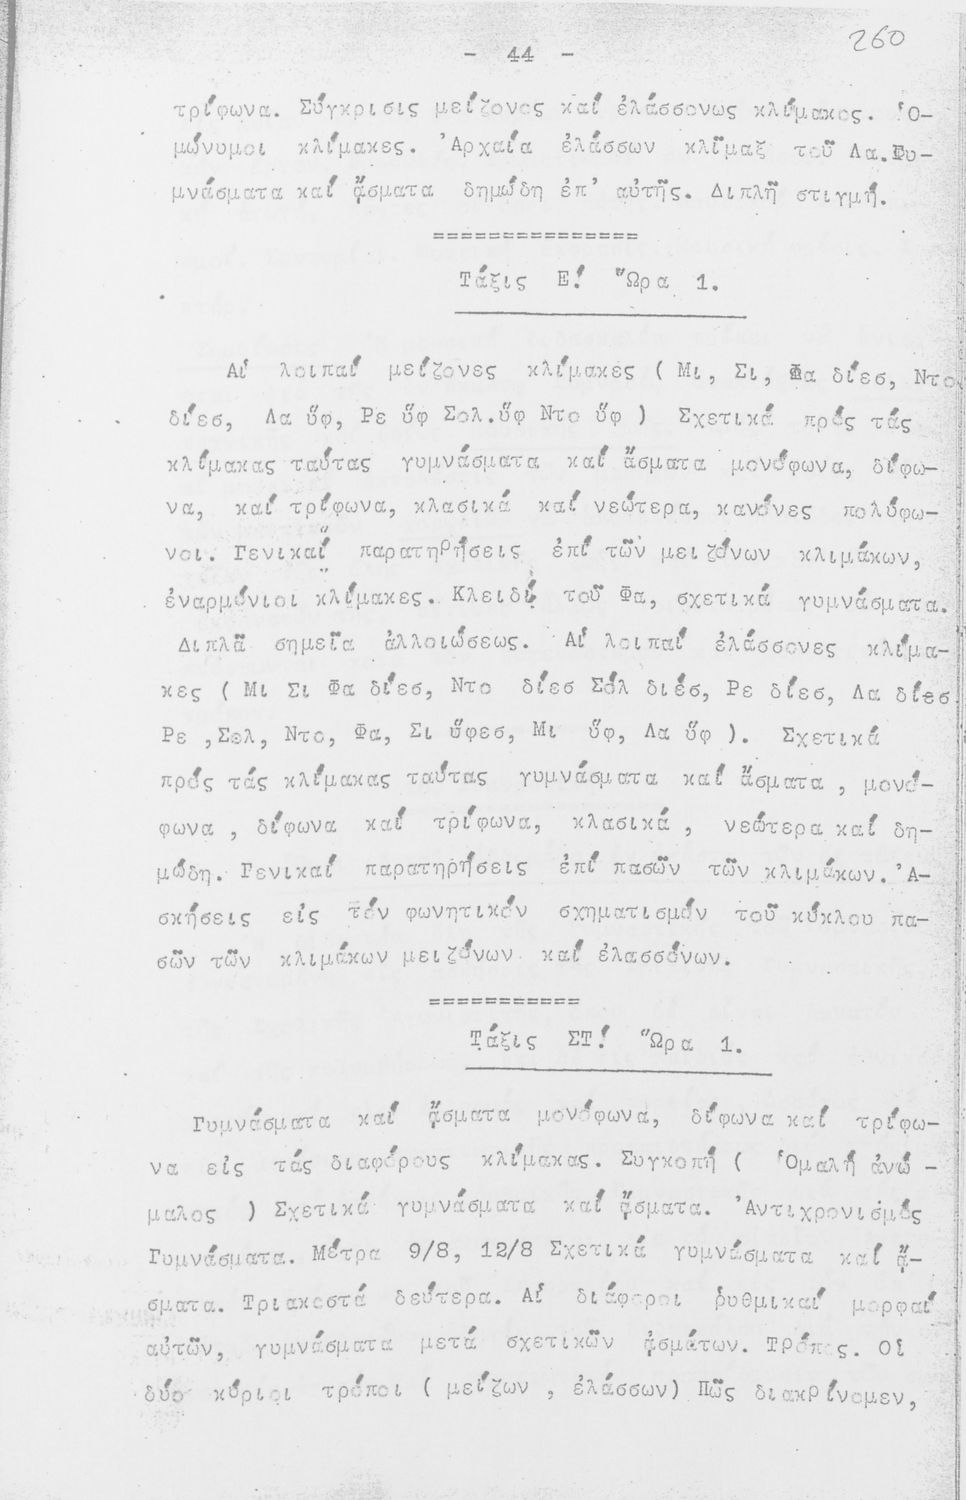 260
- 44 -
τρίφωνα. Σύγκρισις μείζονος καί ἐλάσσονως κλίμακος. Ὁ-
μώνυμοι κλίμακες. Ἀρχαία ἐλάσσων κλῖμαξ τοῦ Λα. Γυ-
μνάσματα καί ᾄσματα δημώδη ἐπ' αὐτῆς. Διπλῆ στιγμή.
===============
Τάξις Ε! Ὥρα 1.
Αἱ λοιπαί μείζονες κλίμακες ( Μι, Σι, Φα δίεσ, Ντο
δίεσ, Λα ὕφ, Ρε ὕφ Σολ.ὕφ Ντο ὕφ ) Σχετικά πρός τάς
κλίμακας ταύτας γυμνάσματα καί ἄσματα μονόφωνα, δίφω-
να, καί τρίφωνα, κλασικά καί νεώτερα, κανόνες πολύφω-
νοι. Γενικαί παρατηρήσεις ἐπί τῶν μειζόνων κλιμάκων,
ἐναρμόνιοι κλίμακες. Κλειδί τοῦ Φα, σχετικά γυμνάσματα.
Διπλᾶ σημεῖα ἀλλοιώσεως. Αἱ λοιπαί ἐλάσσονες κλίμα-
κες ( Μι Σι Φα δίεσ, Ντο δίεσ Σόλ διέσ, Ρε δίεσ, Λα δίεσ
Ρε ,Σολ, Ντο, Φα, Σι ὕφεσ, Μι ὕφ, Λα ὕφ ). Σχετικά
πρός τάς κλίμακας ταύτας γυμνάσματα καί ἄσματα , μονό-
φωνα , δίφωνα καί τρίφωνα, κλασικά , νεώτερα καί δη-
μώδη. Γενικαί παρατηρήσεις ἐπί πασῶν τῶν κλιμάκων. Ἀ-
σκήσεις εἰς τόν φωνητικόν σχηματισμόν τοῦ κύκλου πα-
σῶν τῶν κλιμάκων μειζόνων καί ἐλασσόνων.
===========
Τάξις ΣΤ! Ὥρα 1.
Γυμνάσματα καί ᾄσματα μονόφωνα, δίφωνα καί τρίφω-
να εἰς τάς διαφόρους κλίμακας. Συγκοπή ( Ὁμαλή ἀνώ -
μαλος ) Σχετικά γυμνάσματα καί ᾄσματα. Ἀντιχρονισμός
Γυμνάσματα. Μέτρα 9/8, 12/8 Σχετικά γυμνάσματα καί ᾄ-
σματα. Τριακοστά δεύτερα. Αἱ διάφοροι ῥυθμικαί μορφαί
αὐτῶν, γυμνάσματα μετά σχετικῶν ᾀσμάτων. Τρόπος. Οἱ
δύο κύριοι τρόποι ( μείζων , ἐλάσσων) Πῶς διακρίνομεν,